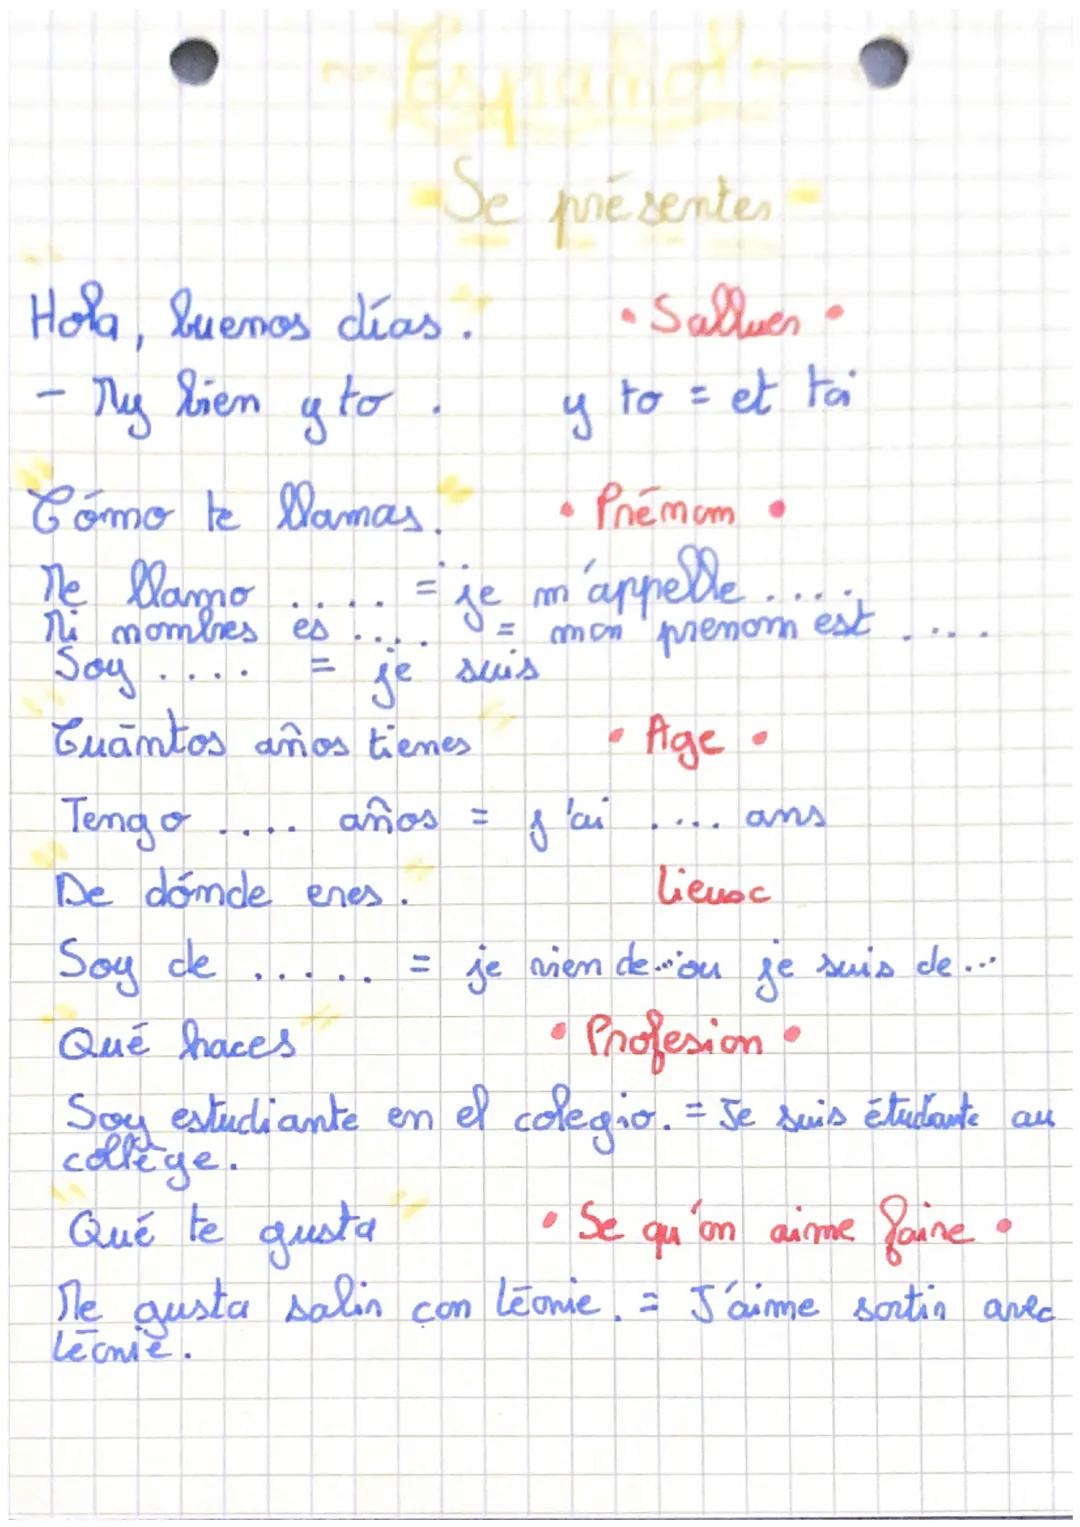 Español
Se présenter
Hola, buenos días. • Salluer •
- My bien y to. y to = et toi
Cómo te llamas. • Prénom •
Me llamo .... = je m'appelle ....
Mi nombres es .... = mon prenom est ....
Soy .... = je suis
Cuántos años tienes • Age •
Tengo .... años = j'ai .... ans
De dónde eres. Lieux
Soy de ..... = je vien de... ou je suis de ...
Qué haces • Profesion •
Soy estudiante en el colegio. = Je suis étudiante au
collège.
Qué te gusta • Se qu'on aime faire •
Me gusta salir con Léonie. = J'aime sortir avec
Léonie.